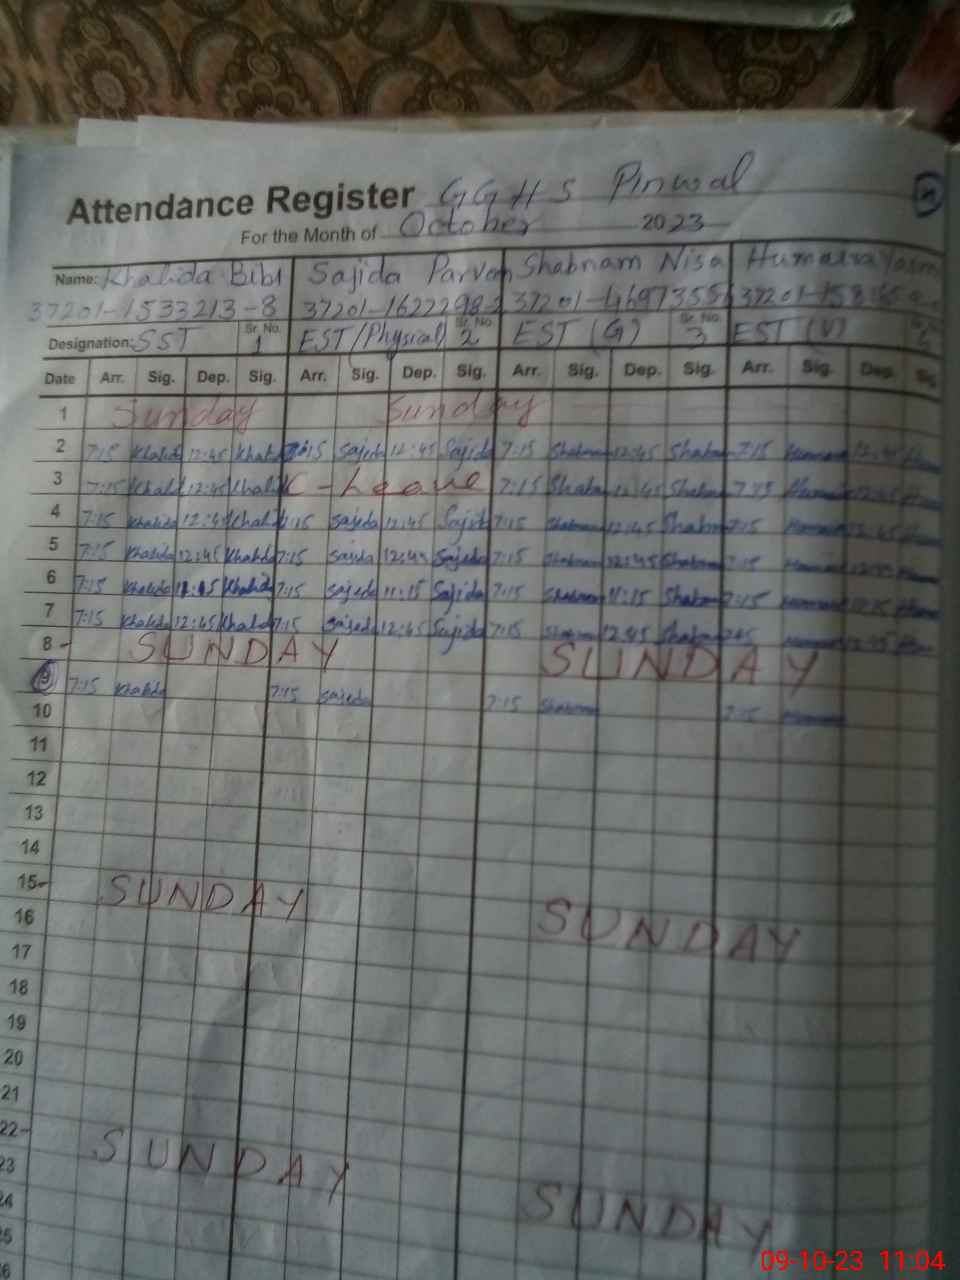 Attendance Register GGHS Pinwal
For the Month of October 2023
Name: Khalida Bibi Sajida Parven Shabnam Nisa Humaira
37201-1533213-8 37201-1622298-2 37201-4697355
Designation: SST Sr. No. 1 EST/Physical Sr. No. 2 EST (G) Sr. No. 3 EST (V)
Date Arr. Sig. Dep. Sig. Arr. Sig. Dep. Sig. Arr. Sig. Dep. Sig. Arr. Sig. Dep. Sig
1 Sunday Sunday
2 7:15 Khalida 12:45 Khalid 7:15 Sajeda 12:45 Sajida 7:15 Shabnam 12:45 Shabnam 7:15 12:45
3 7:15 Khalid 12:45 Khalid C-Leave 7:15 Shabna 12:45 Shabnam 7:15 12:45
4 7:15 Khalida 12:45 Khalid 7:15 Sajeda 12:45 Sajida 7:15 Shabnam 12:45 Shabnam 7:15 12:45
5 7:15 Khalida 12:45 Khalida 7:15 Sajeda 12:45 Sajeda 7:15 Shabnam 12:45 Shabnam 7:15
6 7:15 Khalida Khalida 7:15 Sajeda 11:15 Sajida 7:15 Shabnam 11:15 Shabnam 7:15
7 7:15 Khalida 12:45 Khalid 7:15 Sajeda 12:45 Sajida 7:15 Shabnam 12:45 Shabnam 12:45
8 - SUNDAY SUNDAY
9 7:15 Khalida 7:15 Sajeda 7:15 Shabnam 7:15
10
11
12
13
14
15- SUNDAY
16 SUNDAY
17
18
19
20
21
22- SUNDAY
23
24 SUNDAY
25
09-10-23 11:04